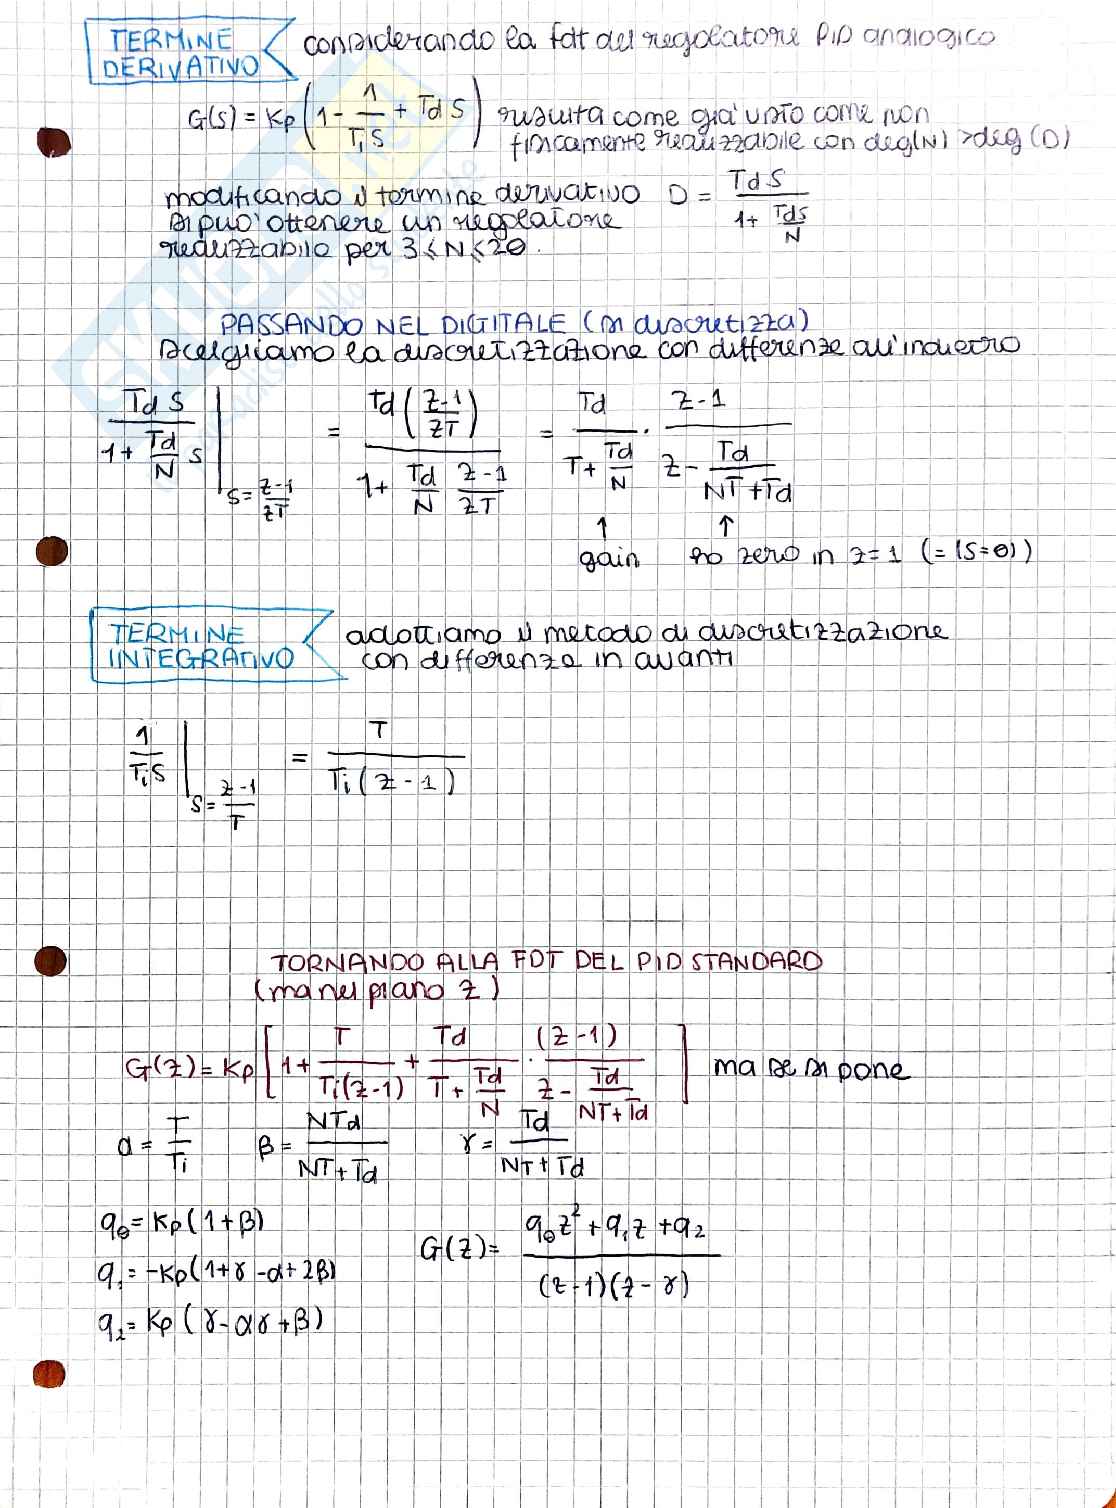 TERMINE DERIVATIVO
considerando la fdt del regolatore PID analogico
G(s) = Kp(1 - 1/(Ti S) + Td S) risulta come già visto come non
fisicamente realizzabile con deg(N) > deg(D)
modificando il termine derivativo D = Td S / (1 + Tds/N)
si può ottenere un regolatore
realizzabile per 3 ≤ N ≤ 20.
PASSANDO NEL DIGITALE (si discretizza)
scelgliamo la discretizzazione con differenze all'indietro
Td S / (1 + Td/N s) | s = z-1/zT = Td (z-1/zT) / (1 + Td/N z-1/zT) = Td / (T + Td/N) · z-1 / (z - Td/(NT+Td))
↑ ↑
gain ho zero in z=1 (=(s=0))
TERMINE INTEGRATIVO
adottiamo il metodo di discretizzazione
con differenze in avanti
1/(Ti S) | s = z-1/T = T / (Ti(z-1))
TORNANDO ALLA FDT DEL PID STANDARD
(ma nel piano z)
G(z) = Kp [1 + T/(Ti(z-1)) + Td/(T + Td/N) · (z-1)/(z - Td/(NT+Td))] ma se si pone
α = T/Ti β = NTd/(NT+Td) γ = Td/(NT+Td)
q0 = Kp(1+β)
G(z) = (q0z² + q1z + q2) / ((z-1)(z-γ))
q1 = -Kp(1+γ-α+2β)
q2 = Kp(γ-αγ+β)